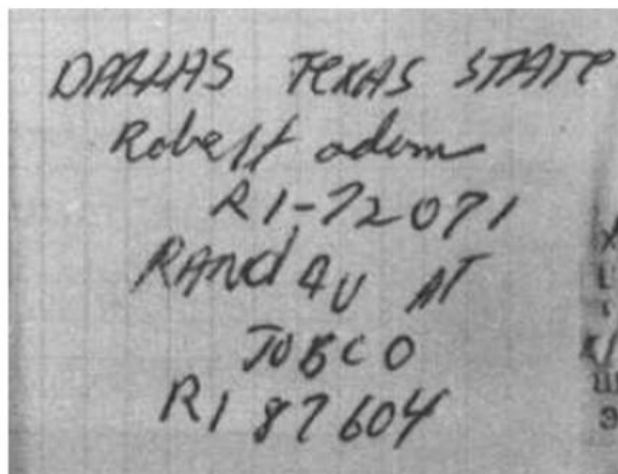 DALLAS TEXAS STATE
Robert adam
RI-72071
RAnd 4U AT
JOBCO
RI 87604